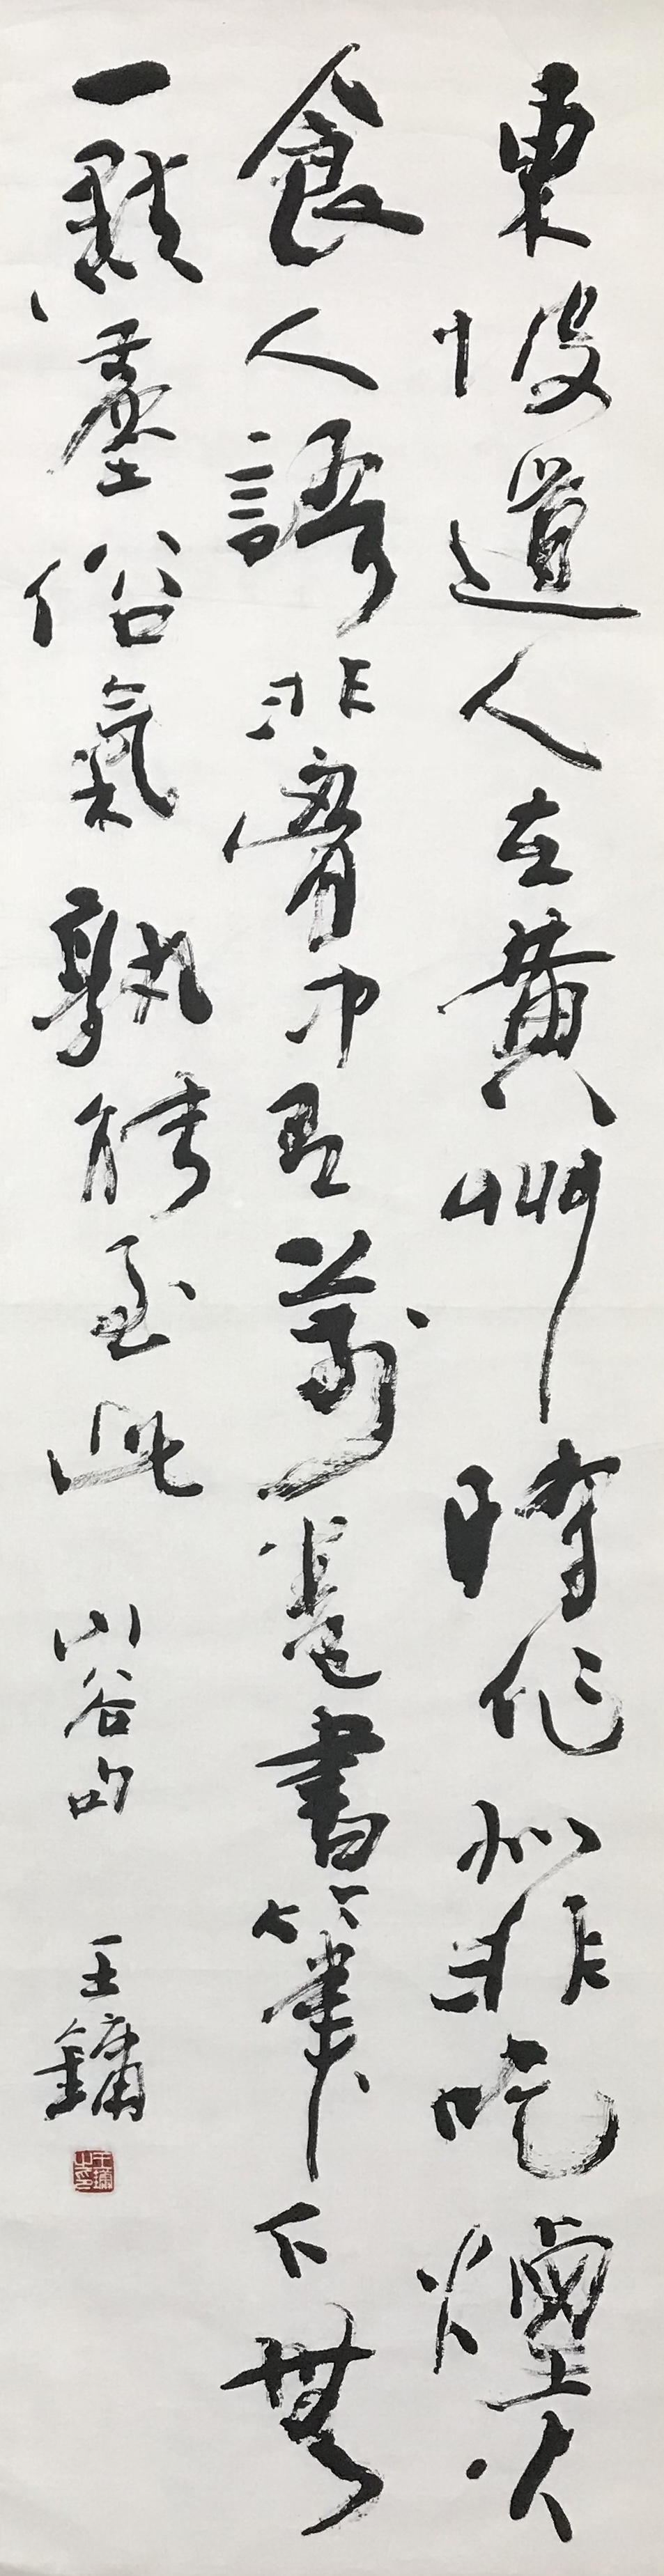 東坡道人在黃州時作似非吃煙火
食人語非胷中有萬卷書筆下無
一點塵俗氣孰能至此 山谷句 王鏞
王鏞之印